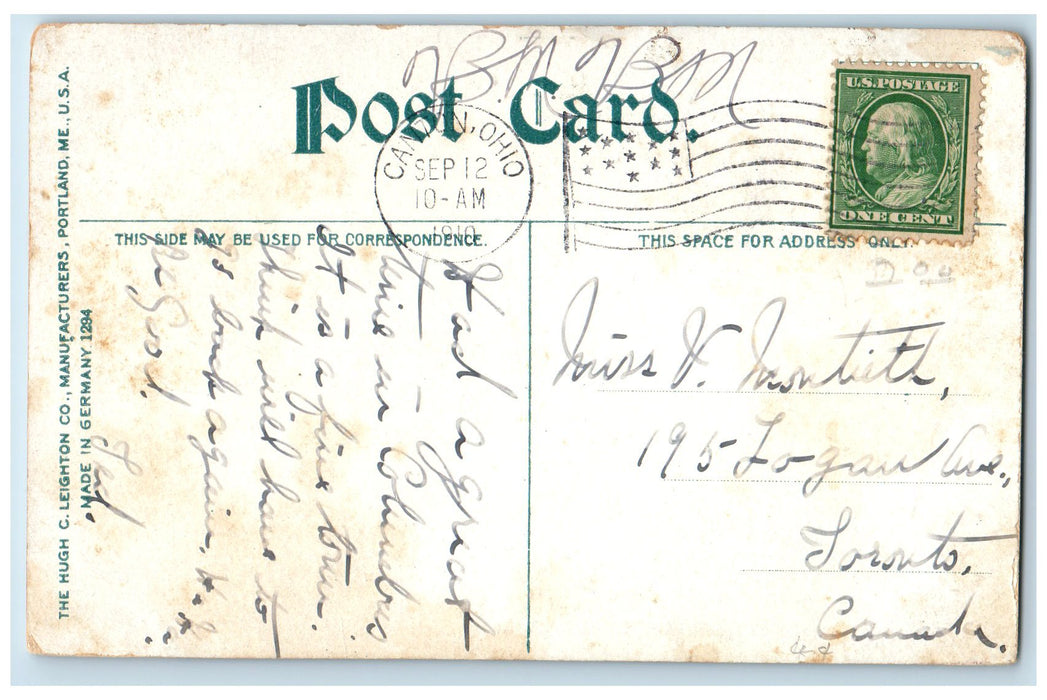 Post Card.
CANTON, OHIO
SEP 12
10-AM
1910
U.S. POSTAGE
ONE CENT
THIS SIDE MAY BE USED FOR CORRESPONDENCE.
THIS SPACE FOR ADDRESS ONLY.
Had a great
time in Columbus
It is a fine town.
think will have to
go back again,
Be Good.
Miss V. Montieth,
195 Logan Ave.,
Toronto,
Canada.
THE HUGH C. LEIGHTON CO., MANUFACTURERS, PORTLAND, ME., U.S.A.
MADE IN GERMANY 1294